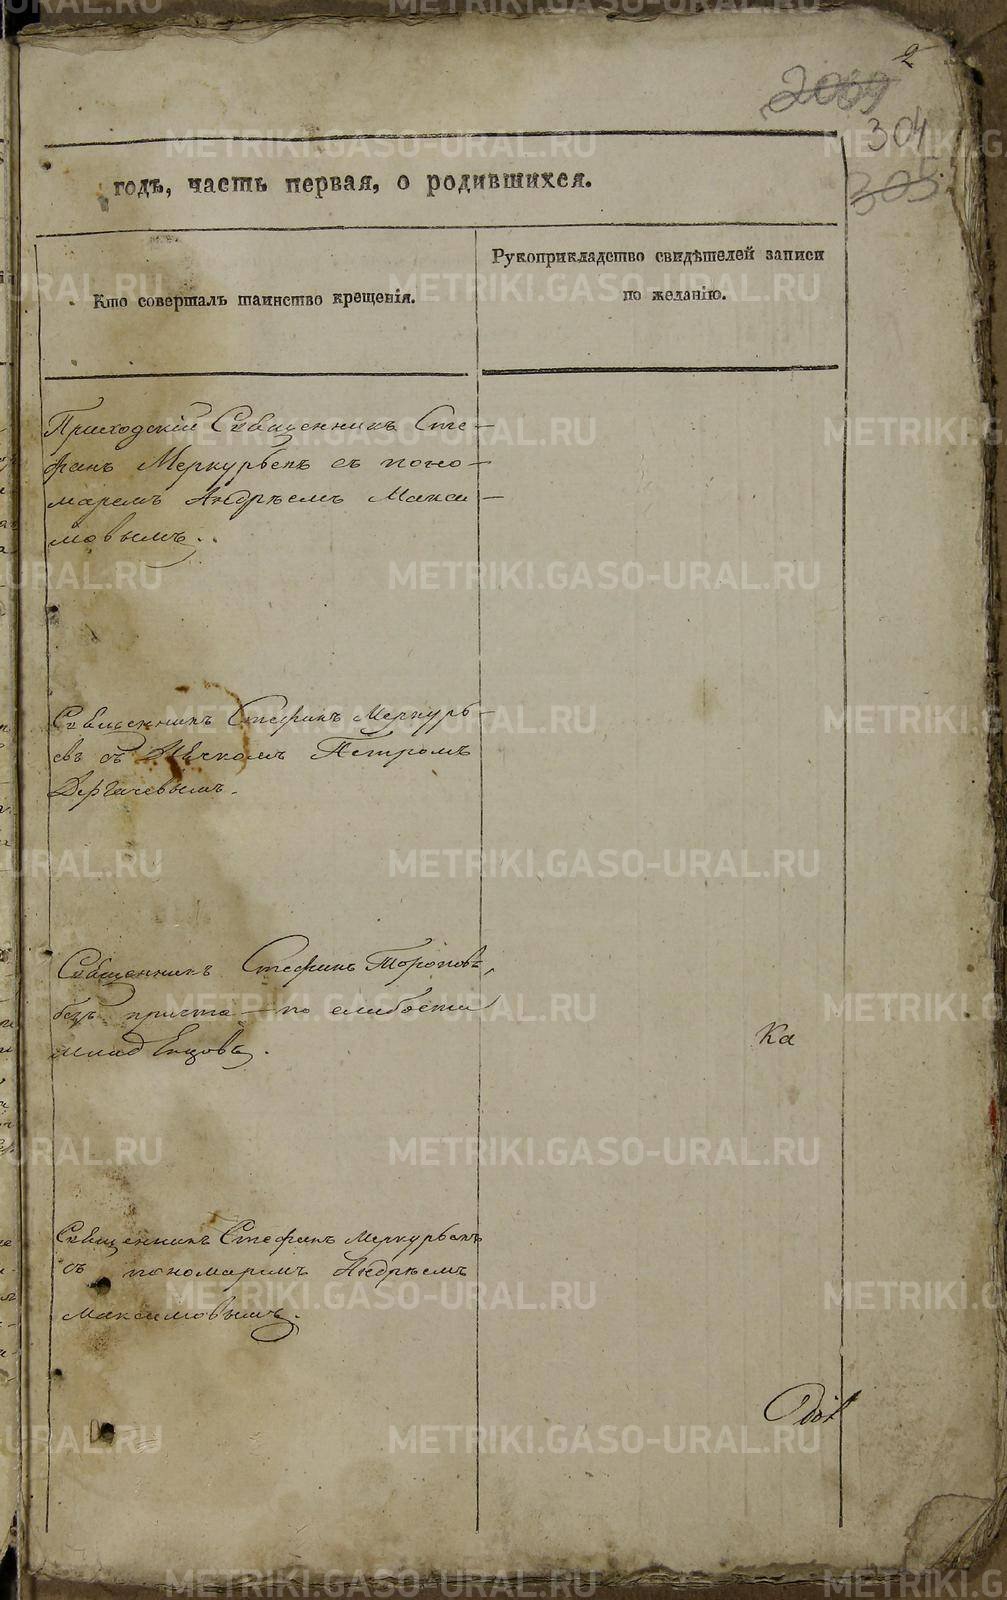 2
2009
304
305
годъ, часть первая, о родившихся.
Кто совершалъ таинство крещенія.
Рукоприкладство свидѣтелей записи
по желанію.
Приходскій Священникъ Сте-
фанъ Меркурьевъ съ поно-
маремъ Андрѣемъ Макси-
мовымъ.
Священникъ Стефанъ Меркурь-
евъ съ Дьячкомъ Петромъ
Дергачевымъ.
Священникъ Стефанъ Тороповъ,
безъ причта - по слабости
младенцовъ.
Ка
Священникъ Стефанъ Меркурьевъ
съ пономаремъ Андрѣемъ
Максимовымъ.
METRIKI.GASO-URAL.RU